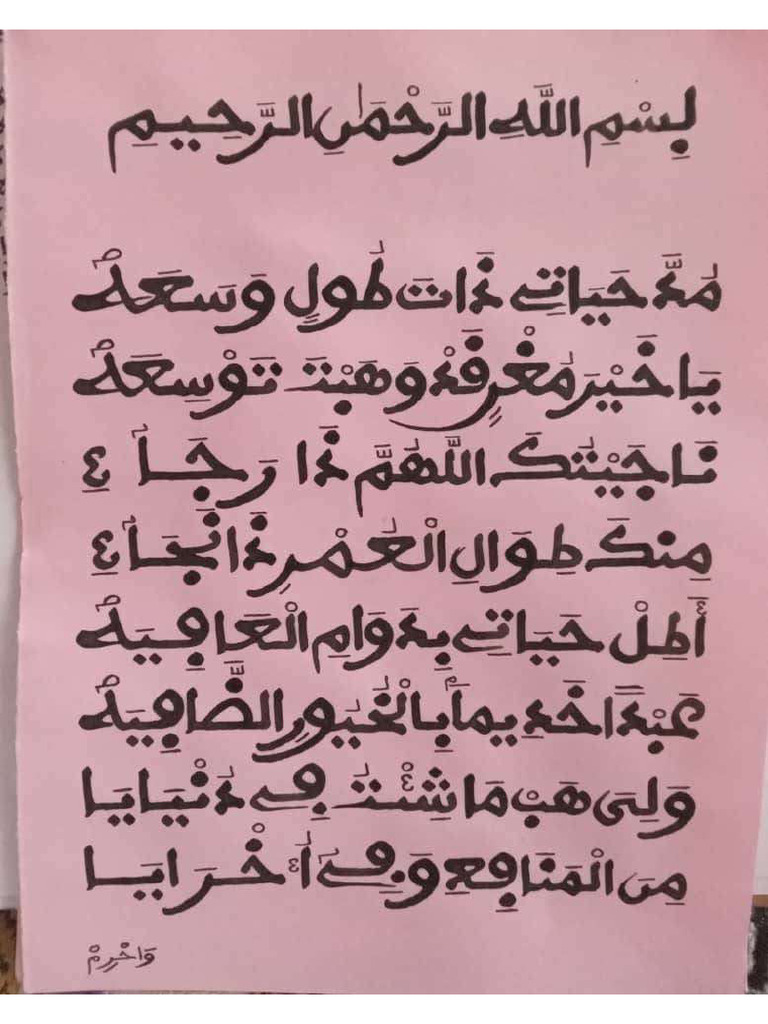 بِسْمِ اللَّهِ الرَّحْمَٰنِ الرَّحِيمِ
مُدَّ حَيَاتِي ذَاتَ طُولٍ وَسَعَهْ
يَا خَيْرَ مُغْرٍ فَدْ وَهَبْتَ تَوْسِعَهْ
نَاجَيْتُكَ اللَّهُمَّ ذَا رَجَاءِ
مِنكَ طِوَالِ الْعُمْرِ ذَا نْجَاءِ
أَطِلْ حَيَاتِي بِدَوَامِ الْعَافِيَهْ
عَبْداً خَدِيماً بِالْخُيُورِ الضَّافِيَهْ
وَلِى هَبْ مَا شِئْتُ فِي دُنْيَايَا
مِنَ الْمَنَافِعِ وَفِي أُخْرَايَا